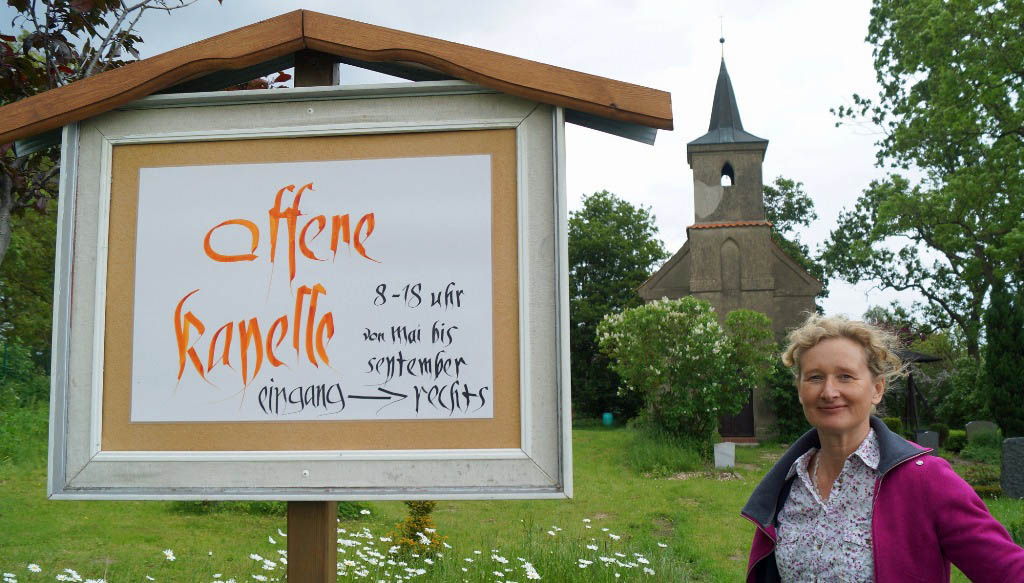 Offene
Kapelle
8-18 uhr
von Mai bis
september
eingang → rechts